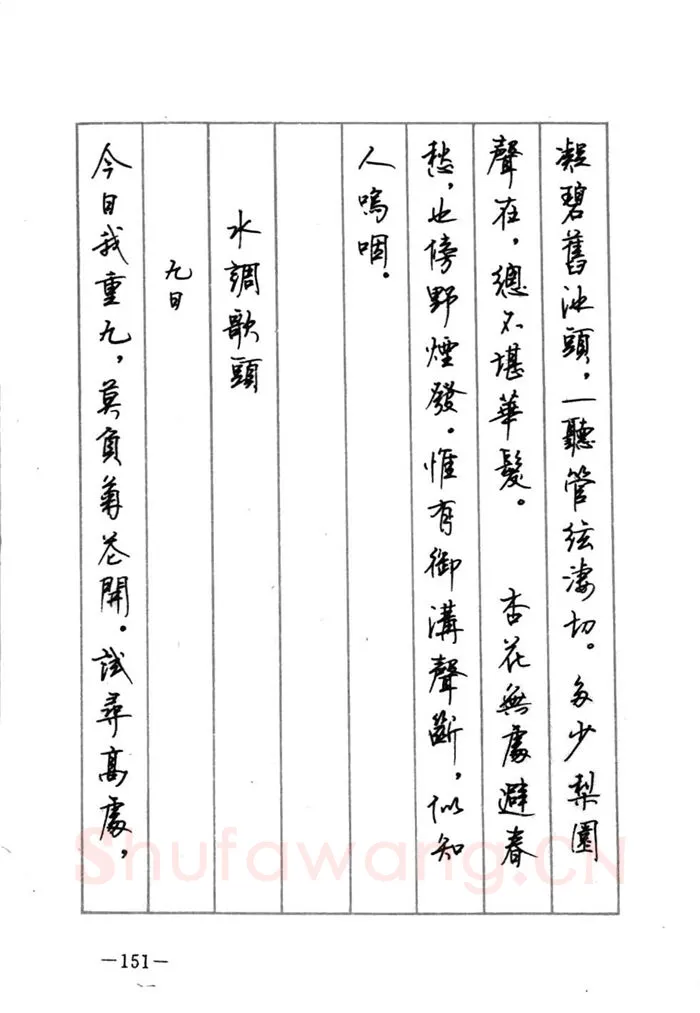 凝碧舊池頭，一聽管絃淒切。多少梨園
聲在，總不堪華髮。　杏花無處避春
愁，也傍野煙發。惟有御溝聲斷，似知
人嗚咽。
水調歌頭
九日
今日我重九，莫負菊花開。試尋高處，
—151—
Shufawang.CN